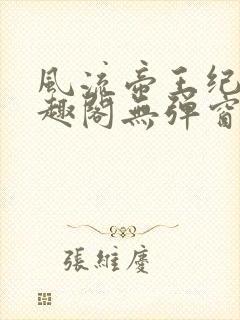 風流帝王纪
趣閣無彈窗
張維慶